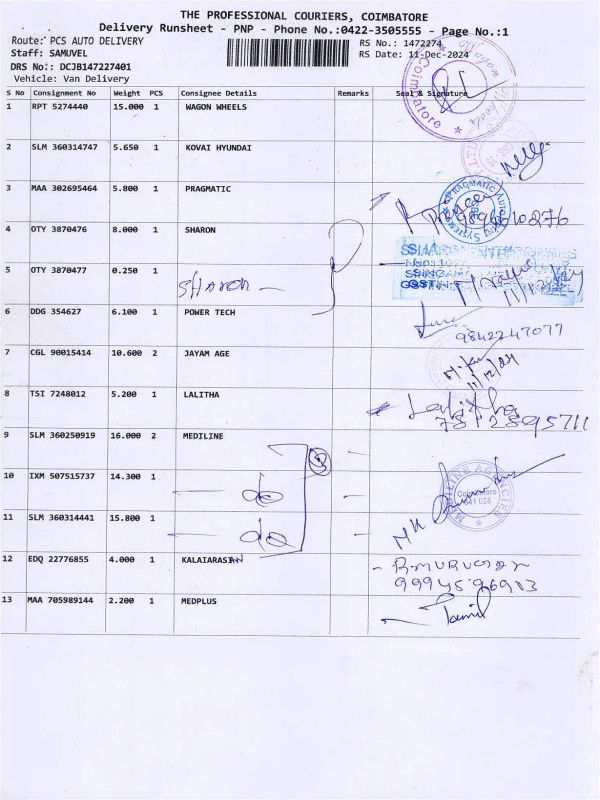 THE PROFESSIONAL COURIERS, COIMBATORE
Delivery Runsheet - PNP - Phone No.:0422-3505555 - Page No.:1
Route: PCS AUTO DELIVERY RS No.: 1472274
Staff: SAMUVEL RS Date: 11-Dec-2024
DRS No:: DCJB147227401
Vehicle: Van Delivery
S No Consignment No Weight PCS Consignee Details Remarks Seal & Signature
1 RPT 5274440 15.000 1 WAGON WHEELS
Coimbatore
2 SLM 360314747 5.650 1 KOVAI HYUNDAI
3 MAA 302695464 5.800 1 PRAGMATIC
4 OTY 3870476 8.000 1 SHARON
5 OTY 3870477 0.250 1 SHARON
6 DDG 354627 6.100 1 POWER TECH
9842247077
7 CGL 90015414 10.600 2 JAYAM AGE
11/12/24
8 TSI 7248012 5.200 1 LALITHA
Lalitha
7812895711
9 SLM 360250919 16.000 2 MEDILINE
3
10 IXM 507515737 14.300 1 do
MEDILINE AGENCIES
Coimbatore
641 028
11 SLM 360314441 15.800 1 do
12 EDQ 22776855 4.000 1 KALAIARASAN
R.MURUGAN
9994596913
13 MAA 705989144 2.200 1 MEDPLUS
Tamil